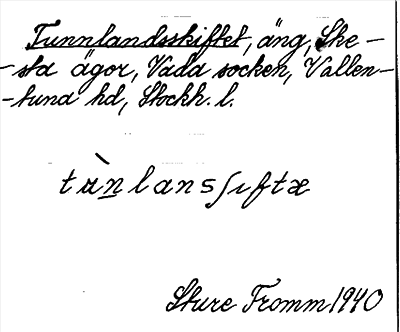 Tunnlandsskiftet, äng, Ske-
-sta ägor, Vada socken, Vallen-
-tuna hd, Stockh. l.
tu̇̀n̲lansʃiftæ
Sture Fromm 1940